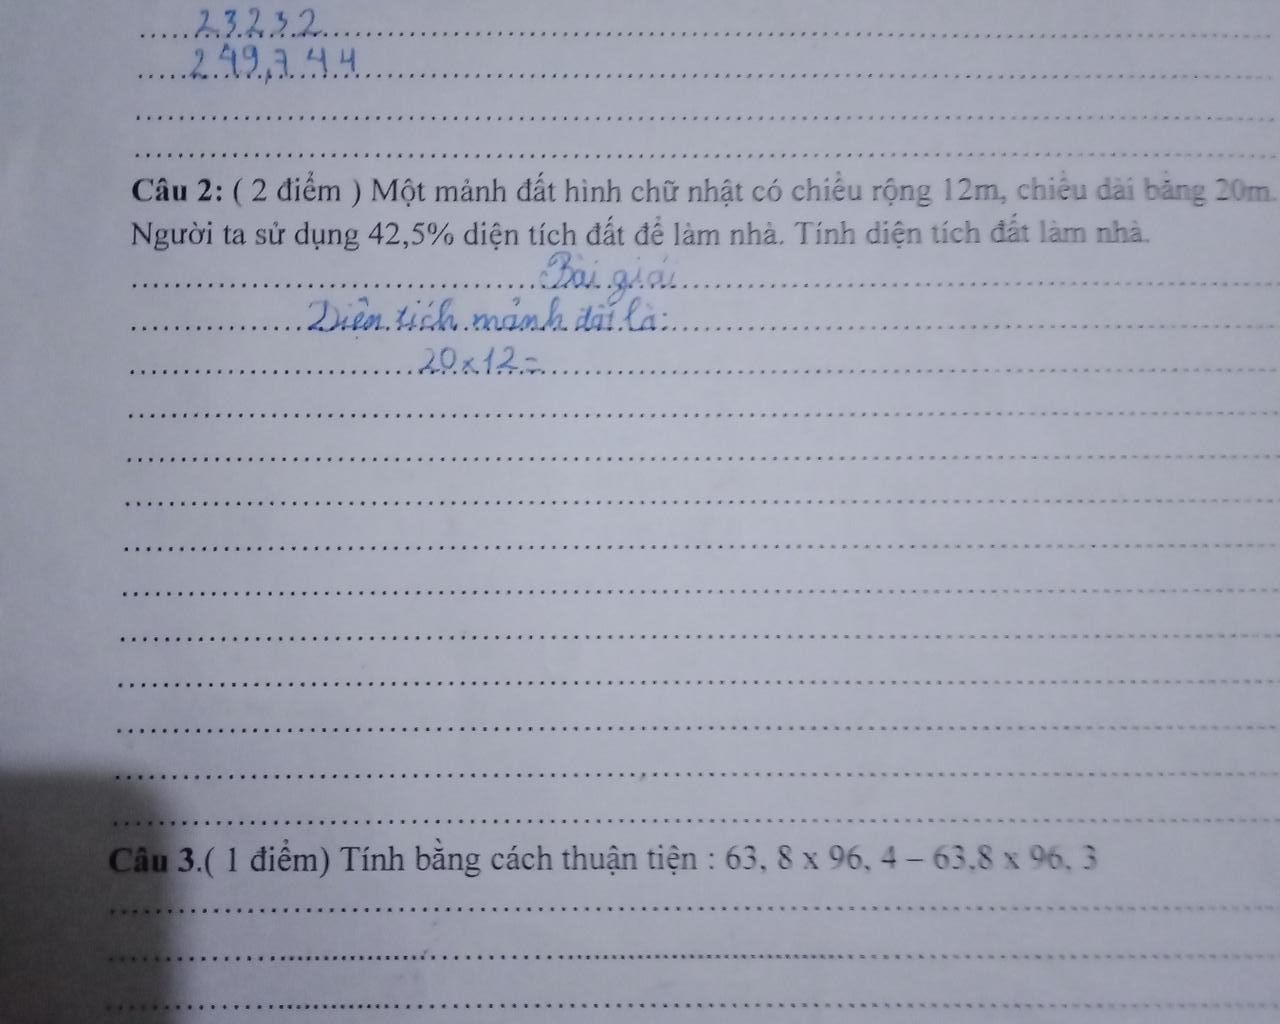 23232
249,744
Câu 2: ( 2 điểm ) Một mảnh đất hình chữ nhật có chiều rộng 12m, chiều dài bằng 20m.
Người ta sử dụng 42,5% diện tích đất để làm nhà. Tính diện tích đất làm nhà.
Bài giải
Diện tích mảnh đất là:
20x12=
Câu 3.( 1 điểm) Tính bằng cách thuận tiện : 63, 8 x 96, 4 – 63,8 x 96, 3